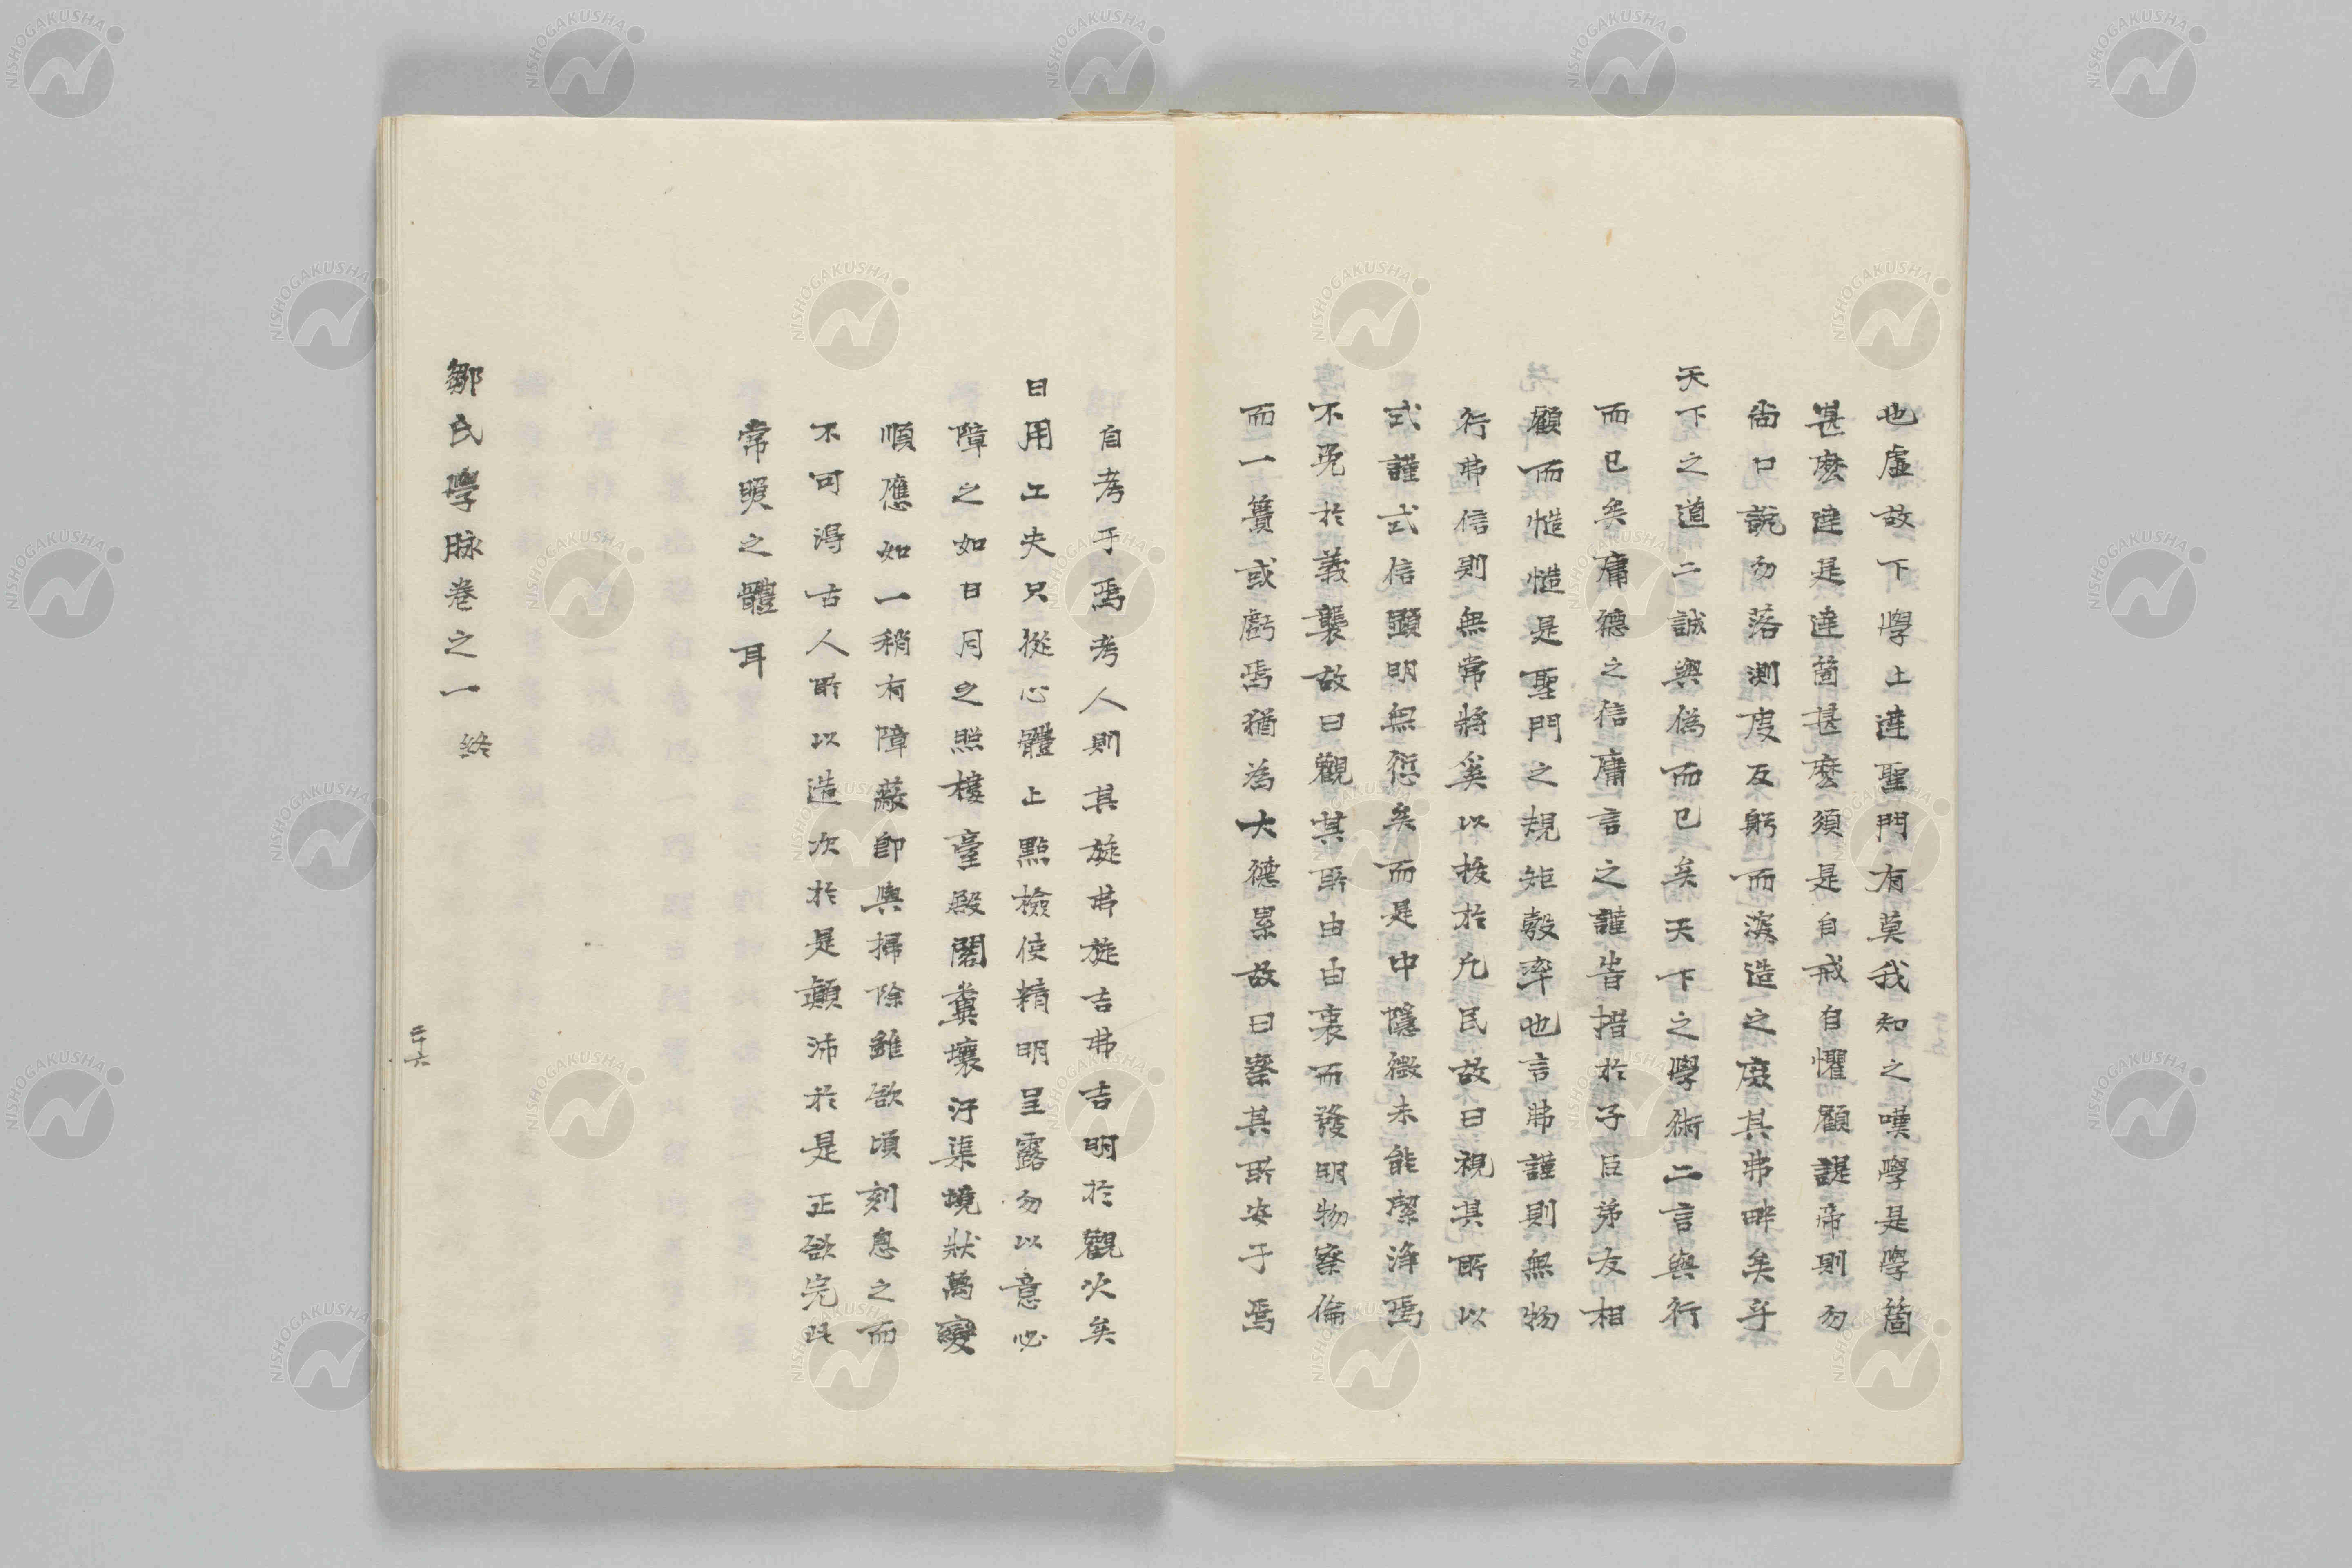 也虛故下學上達聖門有莫我知之嘆學是學箇
甚麽達是達箇甚麽須是自戒自懼顧諟帝則勿
尙口說勿落測度反躬而深造之庶其弗畔矣乎
天下之道二誠與僞而已矣天下之學術二言與行
而已矣庸德之信庸言之謹皆措於子臣弟友相
顧而慥慥是聖門之規矩彀率也言弗謹則無物
行弗信則無常將奚以拔於凡民故曰視其所以
式謹式信顯明無愆矣而是中隱微未能潔淨焉
不免於義襲故曰觀其所由由衷而發明物察倫
而一簣或虧焉猶為大德累故曰察其所安于焉
自考于焉考人則其旋弗旋吉弗吉明於觀火矣
日用工夫只從心體上點檢使精明呈露勿以意必
障之如日月之照樓臺殿閣糞壤汙渠境狀萬變
順應如一稍有障蔽即與掃除雖欲頃刻息之而
不可得古人所以造次於是顛沛於是正欲完此
常照之體耳
鄒氏學脉卷之一 終
二十六
NISHOGAKUSHA